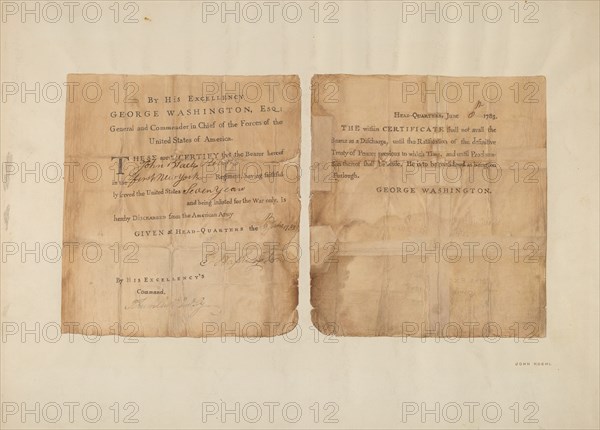 By His Excellency
GEORGE WASHINGTON, Esq;
General and Commander in Chief of the Forces of the
United States of America.
THESE are to CERTIFY that the Bearer hereof
in the First New York Regiment, having faithfully
served the United States Seven Years
and being inlisted for the War only, is
hereby Discharged from the American Army.
GIVEN at Head-Quarters the
By His Excellency's
Command,
Head-Quarters, June 1783.
THE within CERTIFICATE shall not avail the
Bearer as a Discharge, until the Ratification of the definitive
Treaty of Peace; previous to which Time, and until Proclamation
thereof shall be made, He is to be considered as being on
Furlough.
GEORGE WASHINGTON.
JOHN KOEHL
PHOTO 12